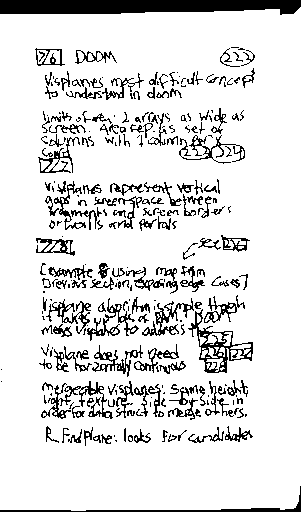 716 DOOM 222
Visplanes most difficult concept
to understand in doom
limits of area: 2 arrays as wide as
screen. Area rep. as set of
columns with 1 column per x
coord 223 224
717
Visplanes represent vertical
gaps in screen space between
fragments and screen borders
or walls and portals
718 see
[example using map from
previous section, exposing edge cases]
Visplane algorithm is simple though
it takes up lots of RAM. DOOM
merges visplanes to address this
225
Visplane does not need 226
to be horizontally continuous 228
mergeable visplanes: same height,
light, texture. side-by-side in
order for data struct to merge others.
R_FindPlane: looks for candidates